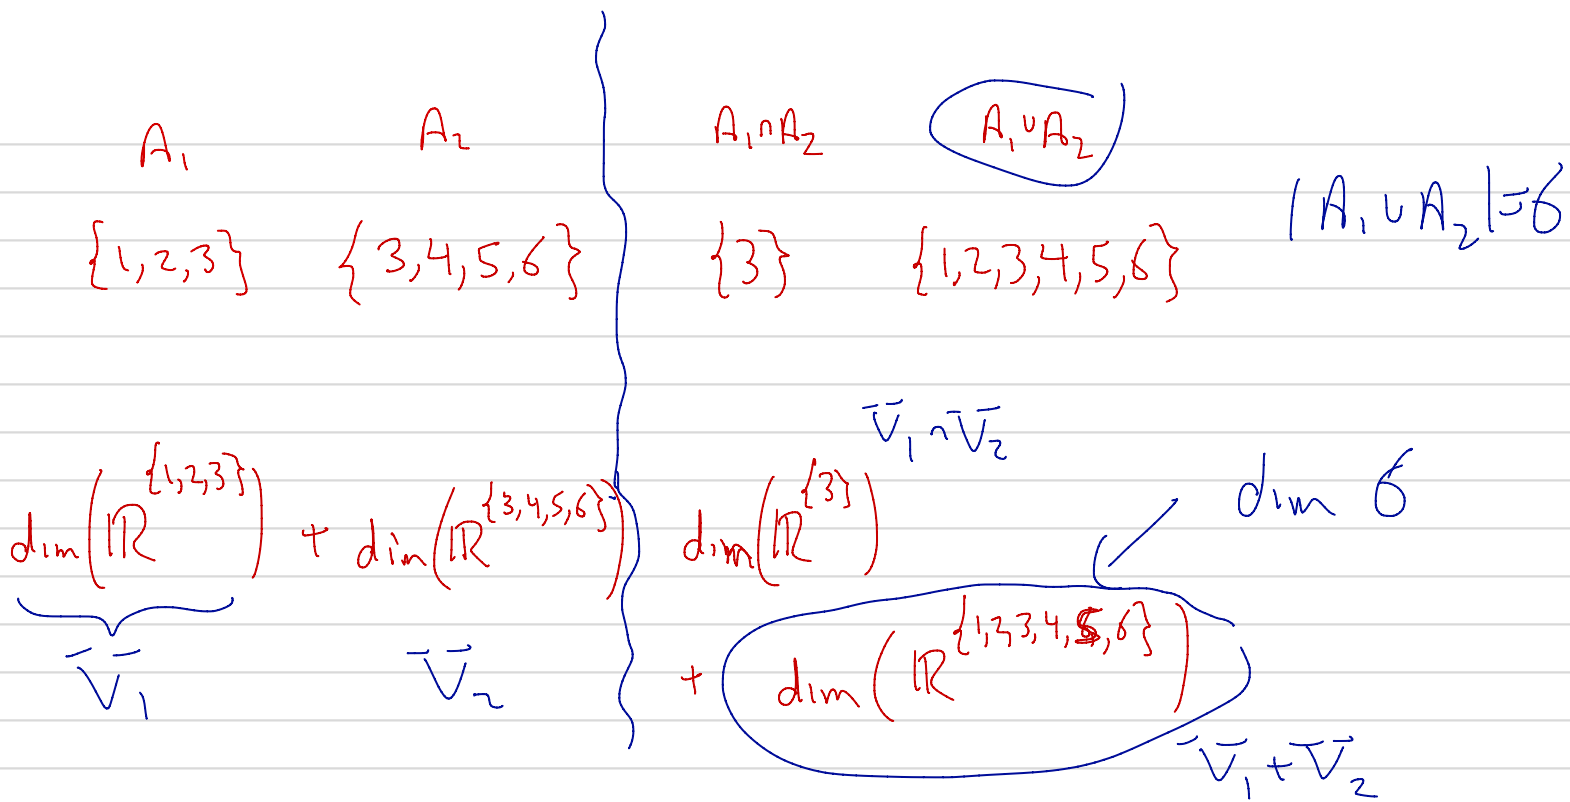 A₁ A₂ A₁∩A₂ A₁∪A₂
|A₁∪A₂|=6
{1,2,3} {3,4,5,6} {3} {1,2,3,4,5,6}
V₁∩V₂
dim(ℝ^{1,2,3}) + dim(ℝ^{3,4,5,6}) dim(ℝ^{3}) dim 6
+ dim(ℝ^{1,2,3,4,5,6})
V₁ V₂
V₁+V₂